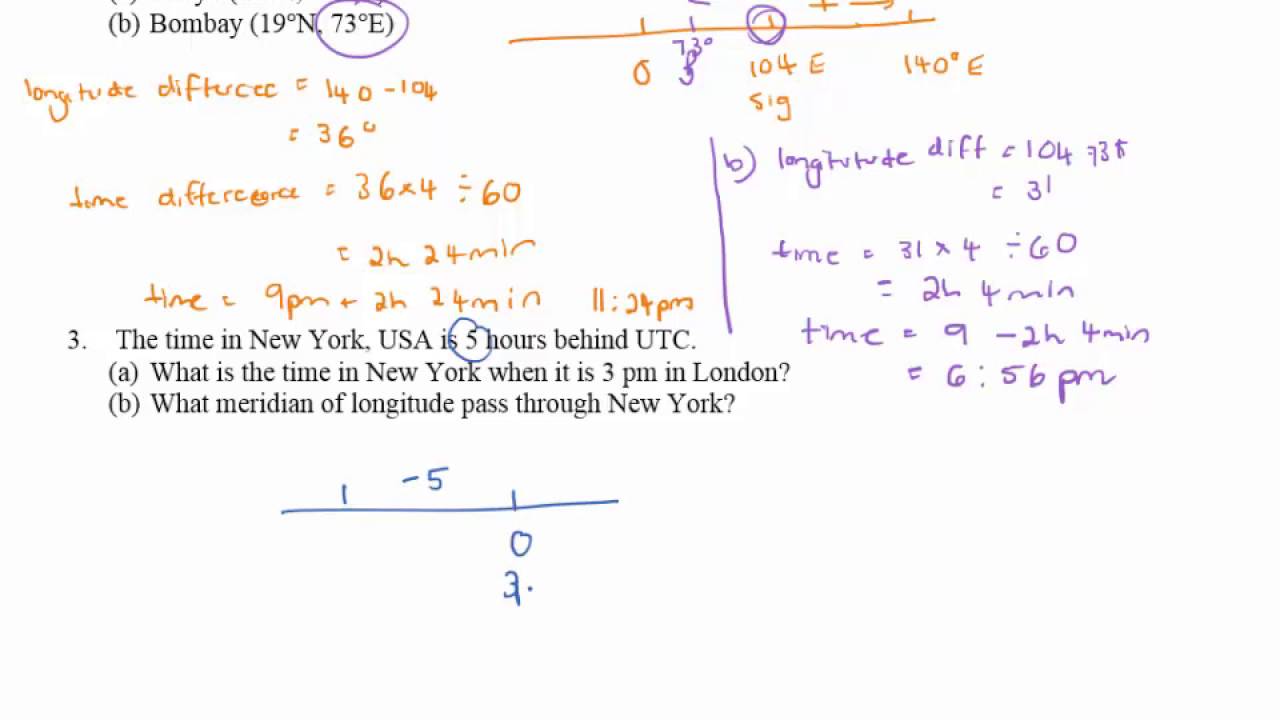 (b) Bombay (19°N, 73°E)
0
73°
104 E
140° E
Sig
longitude differcec = 140 - 104
= 36°
time differecorce = 36 × 4 ÷ 60
= 2h 24 min
time = 9pm + 2h 24 min 11:24pm
b) longitutude diff = 104 73
= 31
time = 31 × 4 ÷ 60
= 2h 4 min
time = 9 - 2h 4min
= 6:56 pm
3. The time in New York, USA is 5 hours behind UTC.
(a) What is the time in New York when it is 3 pm in London?
(b) What meridian of longitude pass through New York?
-5
0
3.